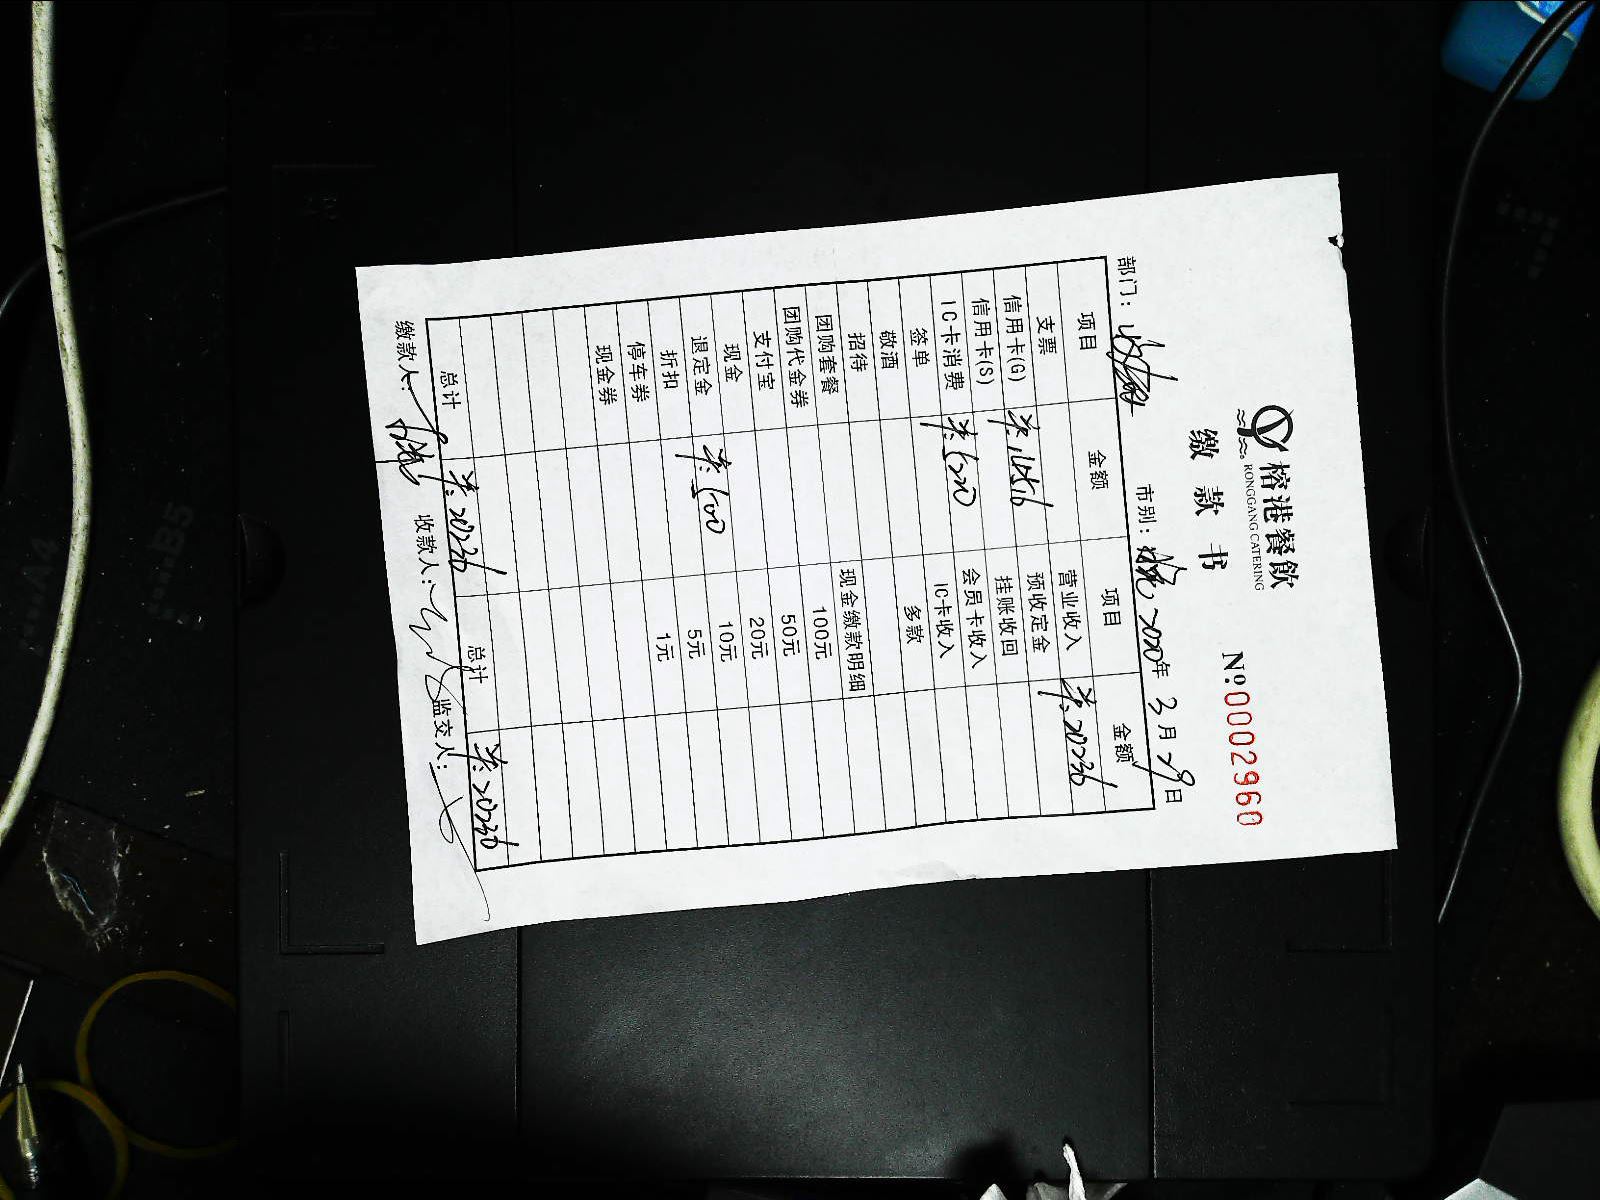 榕港餐飲
RONGGANG CATERING
缴款书
№0002960
部门： 市别： 2020年3月29日
项目 金额 项目 金额
支票 营业收入 羊:20236
信用卡(G) 预收定金
信用卡(S) 挂账收回
IC卡消费 会员卡收入
签单 IC卡收入
敬酒 多款
招待
团购套餐 现金缴款明细
团购代金券 100元
支付宝 50元
现金 20元
退定金 羊:500 10元
折扣 5元
停车券 1元
现金券
总计 羊:20236 总计 羊:20236
缴款人： 收款人： 监交人：
A4
B5